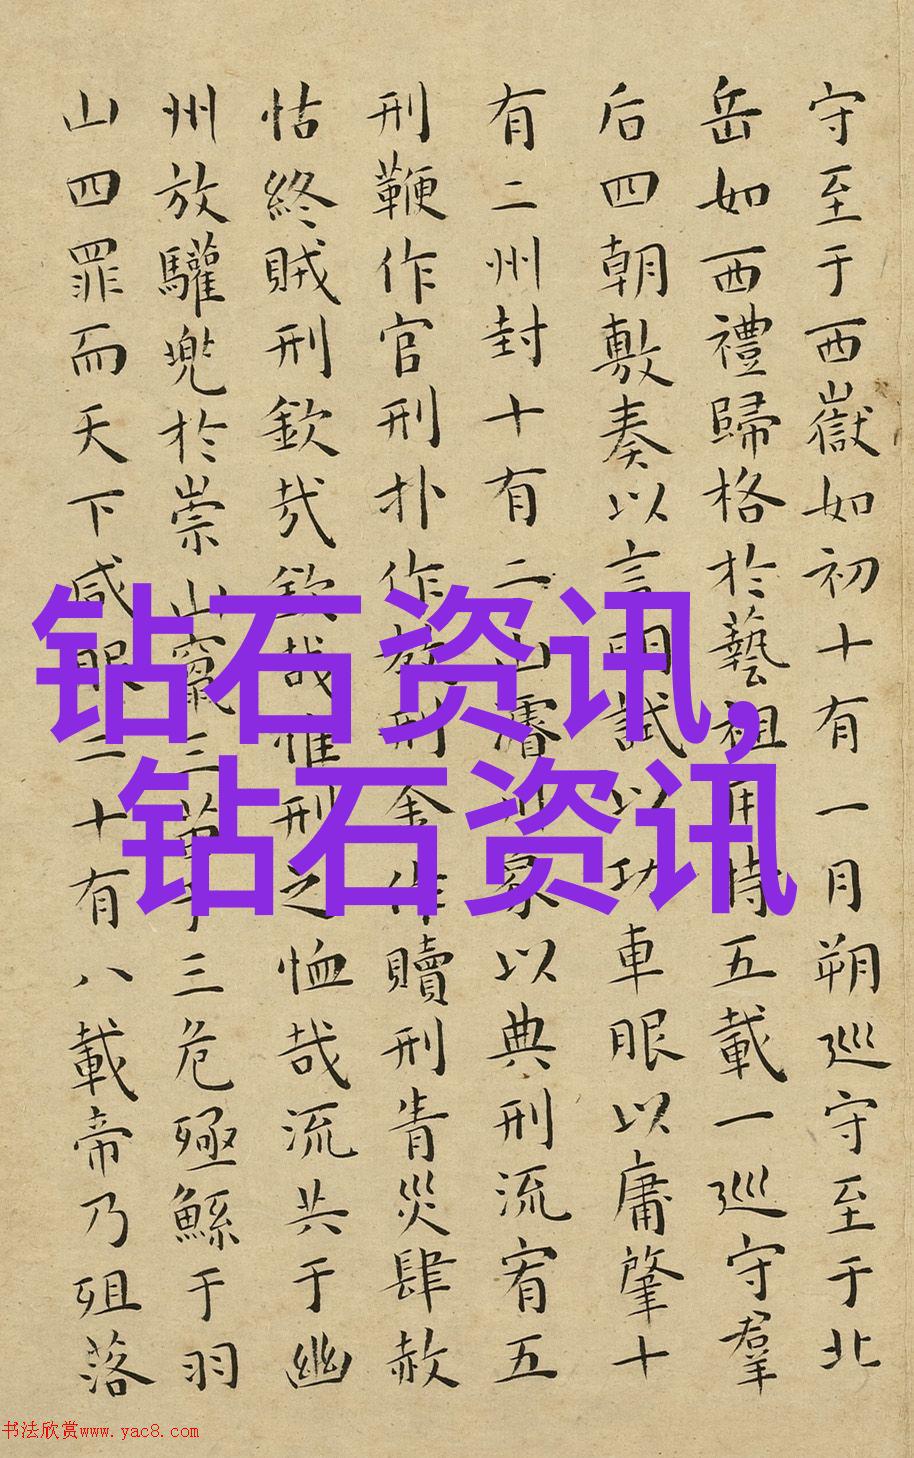 守至于西嶽如初十有一月朔巡守至于北
岳如西禮歸格於藝祖用特五載一巡守羣
后四朝敷奏以言明試以功車服以庸肇十
有二州封十有二山濬川象以典刑流宥五
刑鞭作官刑扑作教刑金作贖刑眚災肆赦
怙終賊刑欽哉欽哉惟刑之恤哉流共于幽
州放驩兜於崇山竄三苗于三危殛鯀于羽
山四罪而天下咸服二十有八載帝乃殂落
钻石资讯,
钻石资讯
书法欣赏www.yac8.com